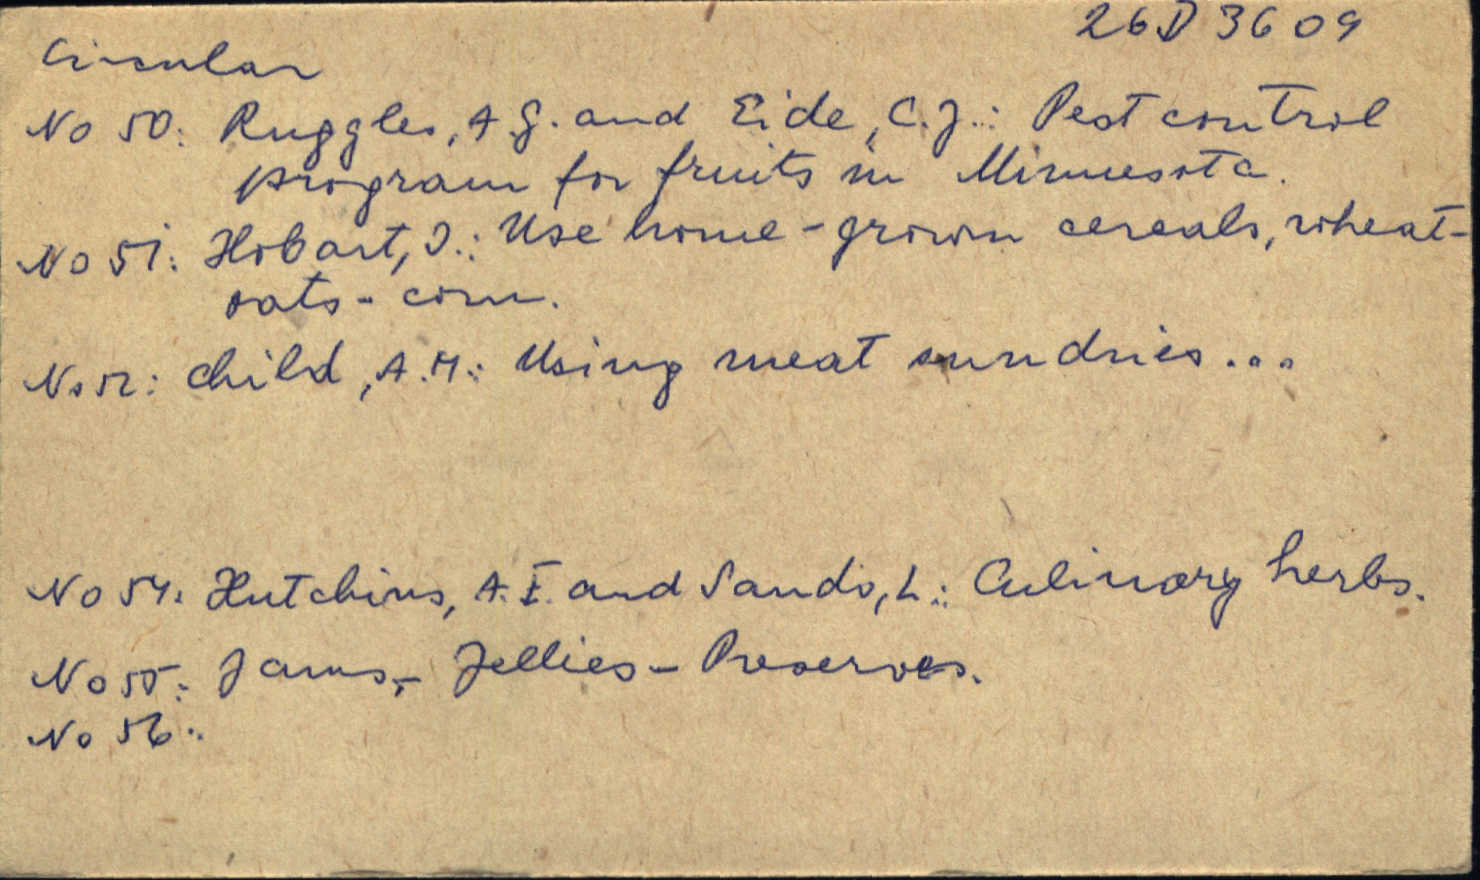 26D 3609
Circular
No 50: Ruggles, A.G. and Eide, C.J.: Pest control
program for fruits in Minnesota.
No 51: Hobart, J.: Use home-grown cereals, wheat-
oats-corn.
No 52: Child, A.M.: Using meat sundries...
No 54: Hutchins, A.E. and Sands, L.: Culinary herbs.
No 55: Jams,- Jellies - Preserves.
No 56: